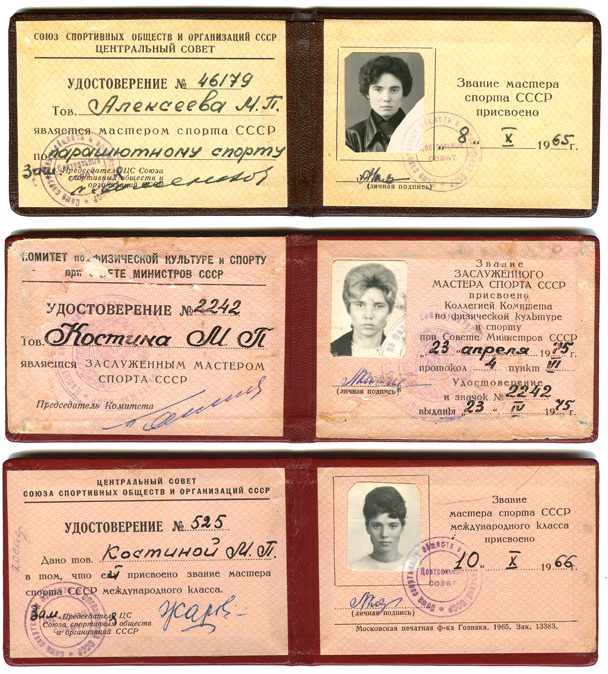 СОЮЗ СПОРТИВНЫХ ОБЩЕСТВ И ОРГАНИЗАЦИЙ СССР
ЦЕНТРАЛЬНЫЙ СОВЕТ
УДОСТОВЕРЕНИЕ № 46179
Тов. Алексеева М.П.
является мастером спорта СССР
по парашютному спорту
Зам. Председатель ЦС Союза
спортивных обществ и
организаций СССР
Звание мастера
спорта СССР
присвоено
8 „ X 1965г.
(личная подпись)
КОМИТЕТ по ФИЗИЧЕСКОЙ КУЛЬТУРЕ и СПОРТУ
при СОВЕТЕ МИНИСТРОВ СССР
УДОСТОВЕРЕНИЕ №2242
Тов. Костина М П
является ЗАСЛУЖЕННЫМ МАСТЕРОМ
СПОРТА СССР
Председатель Комитета
Звание
ЗАСЛУЖЕННОГО
МАСТЕРА СПОРТА СССР
присвоено
Коллегией Комитета
по физической культуре
и спорту
при Совете Министров СССР
„23 апреля 1975г.
протокол 4 пункт VI
Удостоверение
и значок № 2242
выданы 23 „ IV 1975г.
(личная подпись)
ЦЕНТРАЛЬНЫЙ СОВЕТ
СОЮЗА СПОРТИВНЫХ ОБЩЕСТВ И ОРГАНИЗАЦИЙ СССР
УДОСТОВЕРЕНИЕ № 525
Дано тов. Костиной М.П.
в том, что ей присвоено звание мастера
спорта СССР международного класса.
Зам. Председатель ЦС
Союза спортивных обществ
и организаций СССР
Звание
мастера спорта СССР
международного класса
присвоено
10 „ X 1966г.
Центральный
совет
(личная подпись)
Московская печатная ф-ка Гознака. 1965. Зак. 13383.